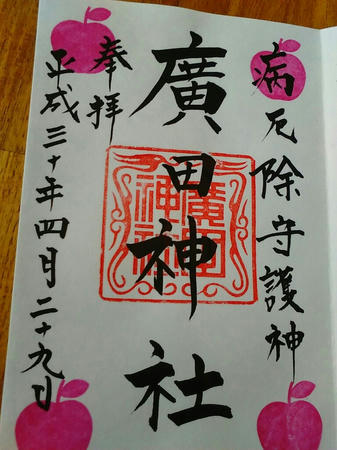 病厄除守護神
廣田神社
奉拝
平成三十年四月二十九日
廣田
神社